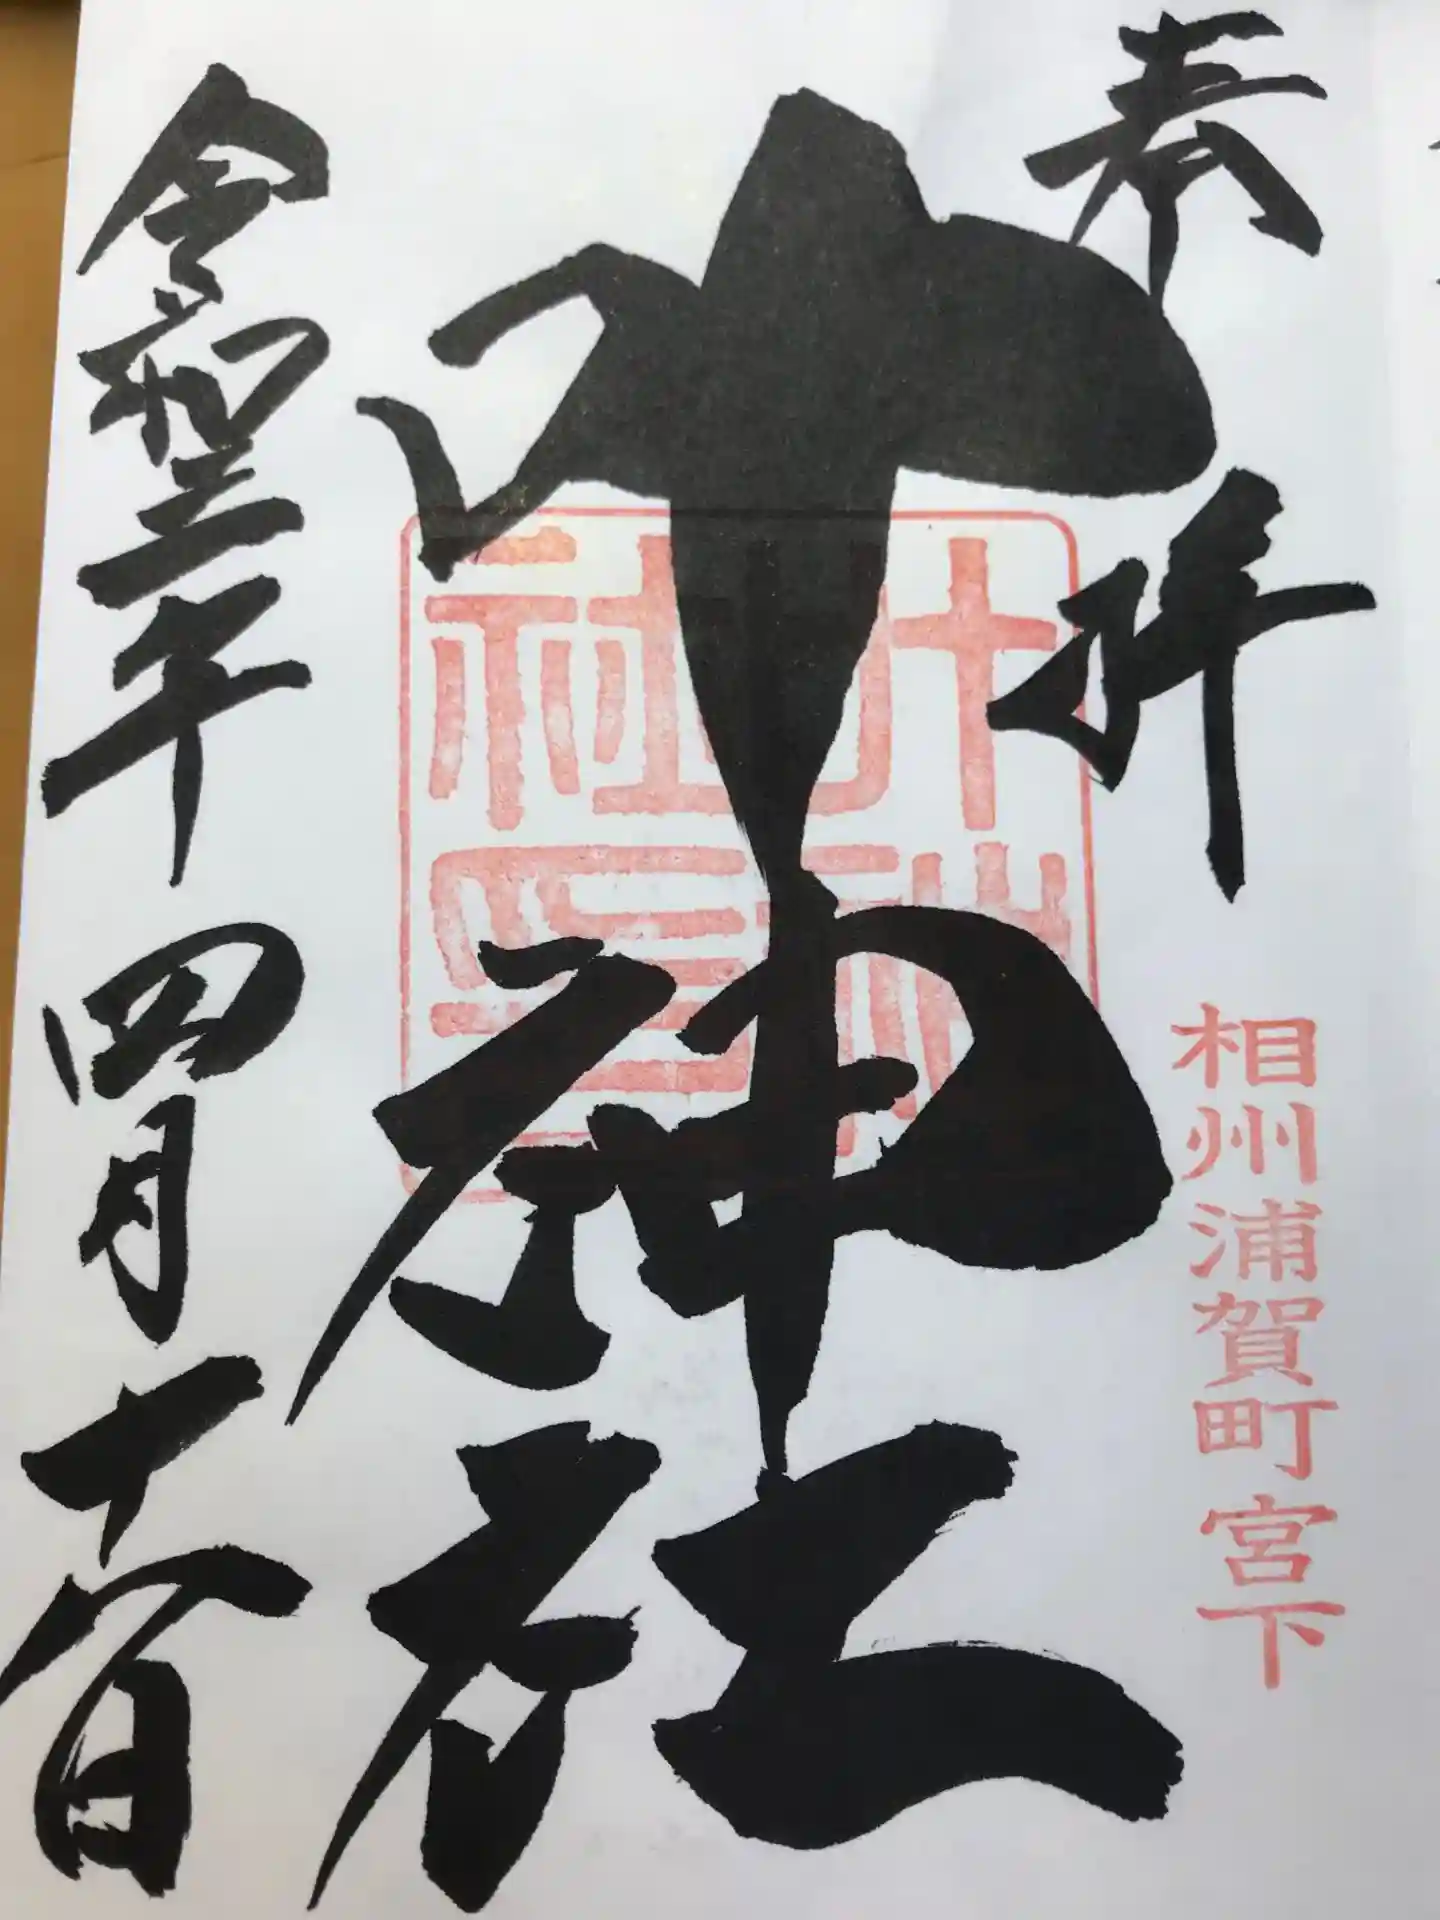 奉拝
相州浦賀町宮下
叶神社
叶神社印
令和三年四月十八日